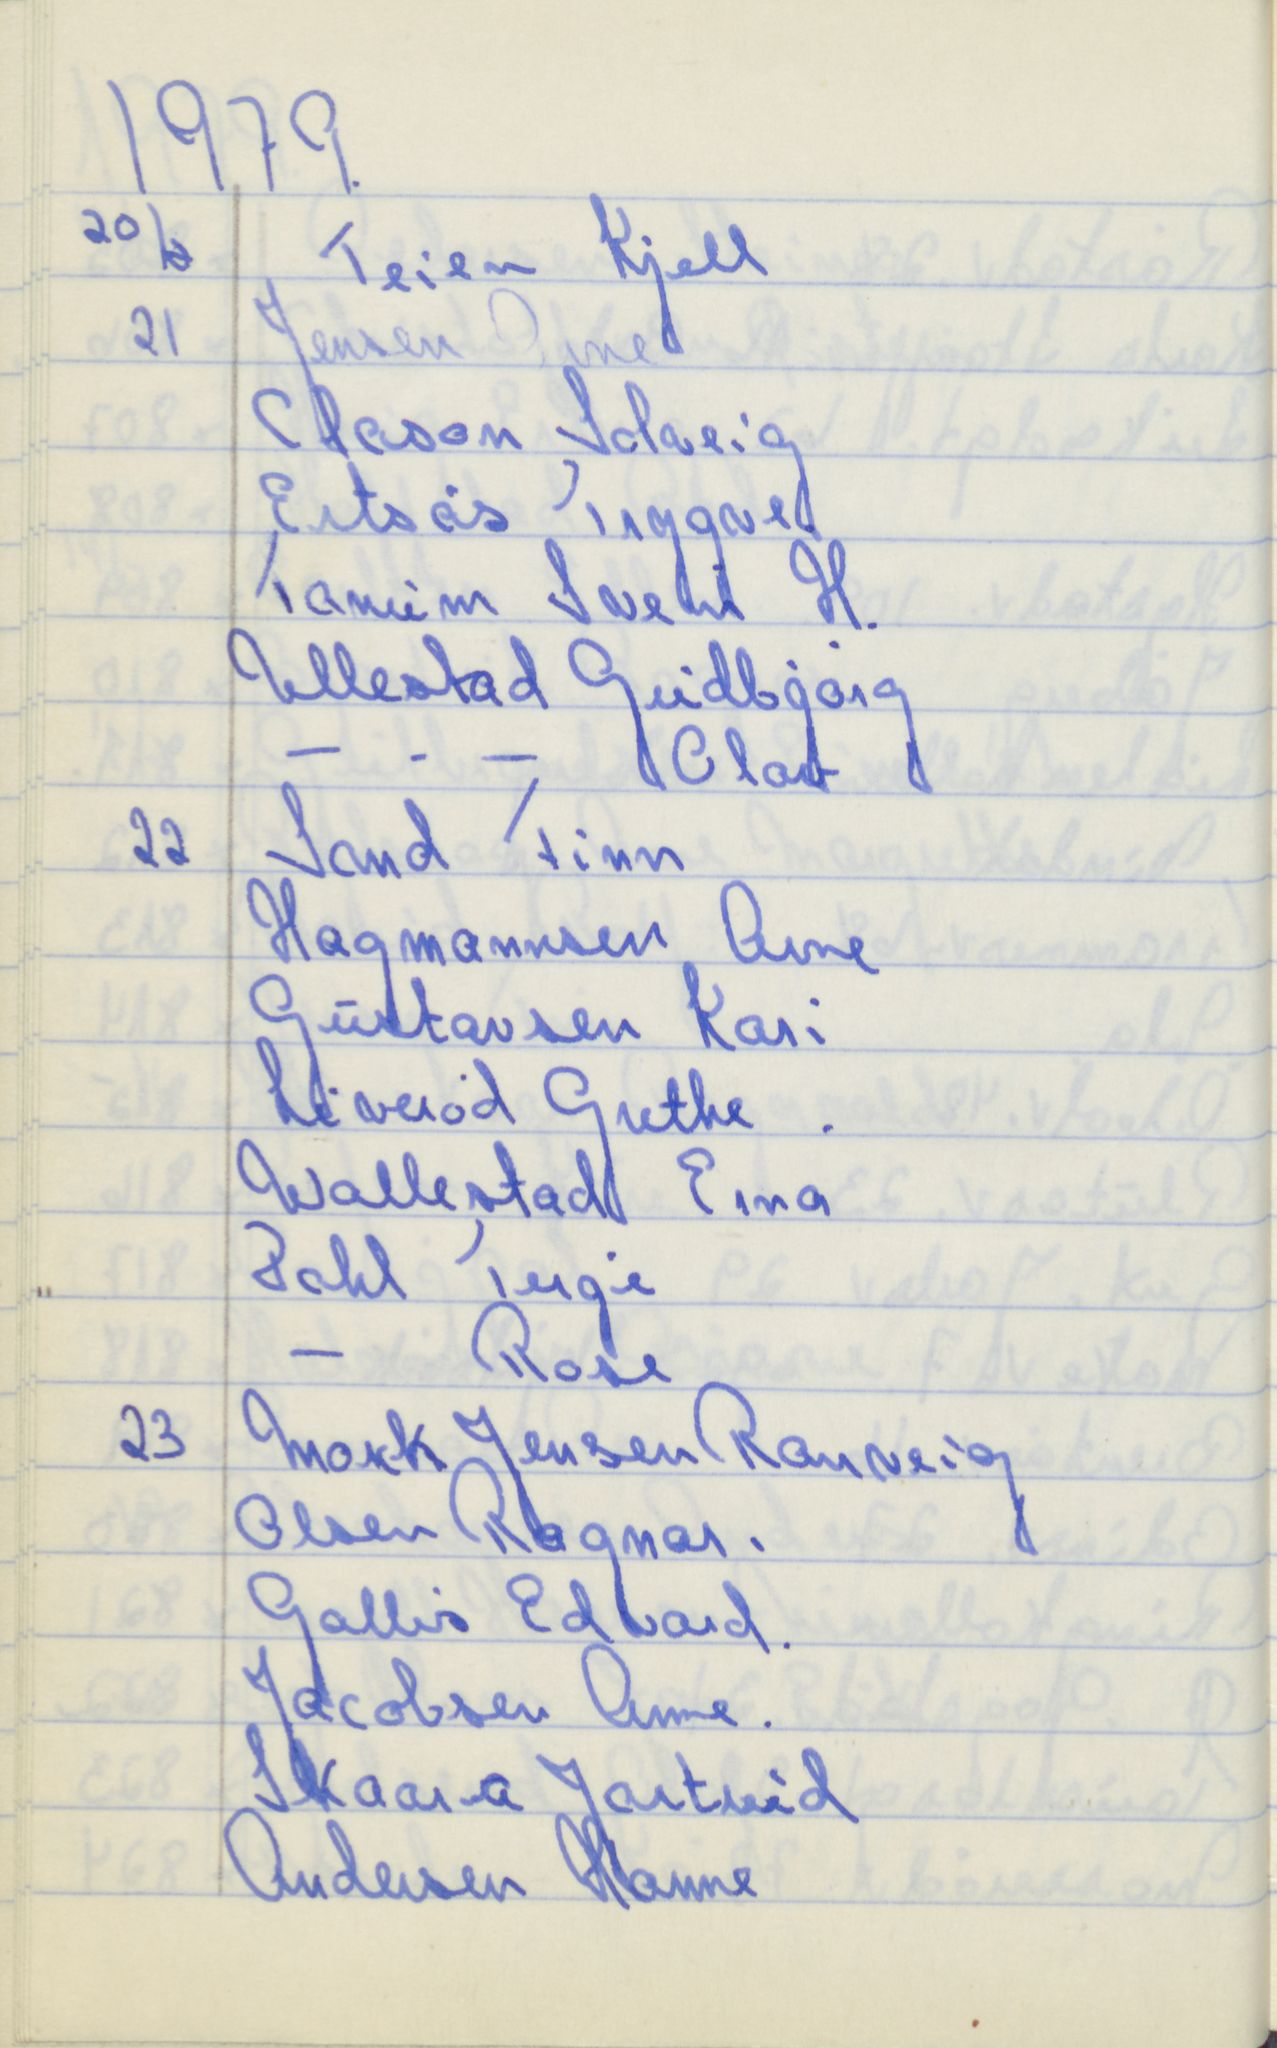 1979.
20/2 Teien Kjell
21 Jensen Arne
Clason Solveig
Ertsås Tryggve.
Tanum Svein H.
Ullestad Gudbjörg
— - — Olav
22 Sand Finn
Hagmannsen Arne
Gustavsen Kari
Liveröd Grethe.
Wallestad Erna
Pahl Terje
— Rose
23 Mork Jensen Ranveig
Olsen Ragnar.
Gallis Edvard.
Jacobsen Anne.
Skaara Jartrud
Andersen Hanne